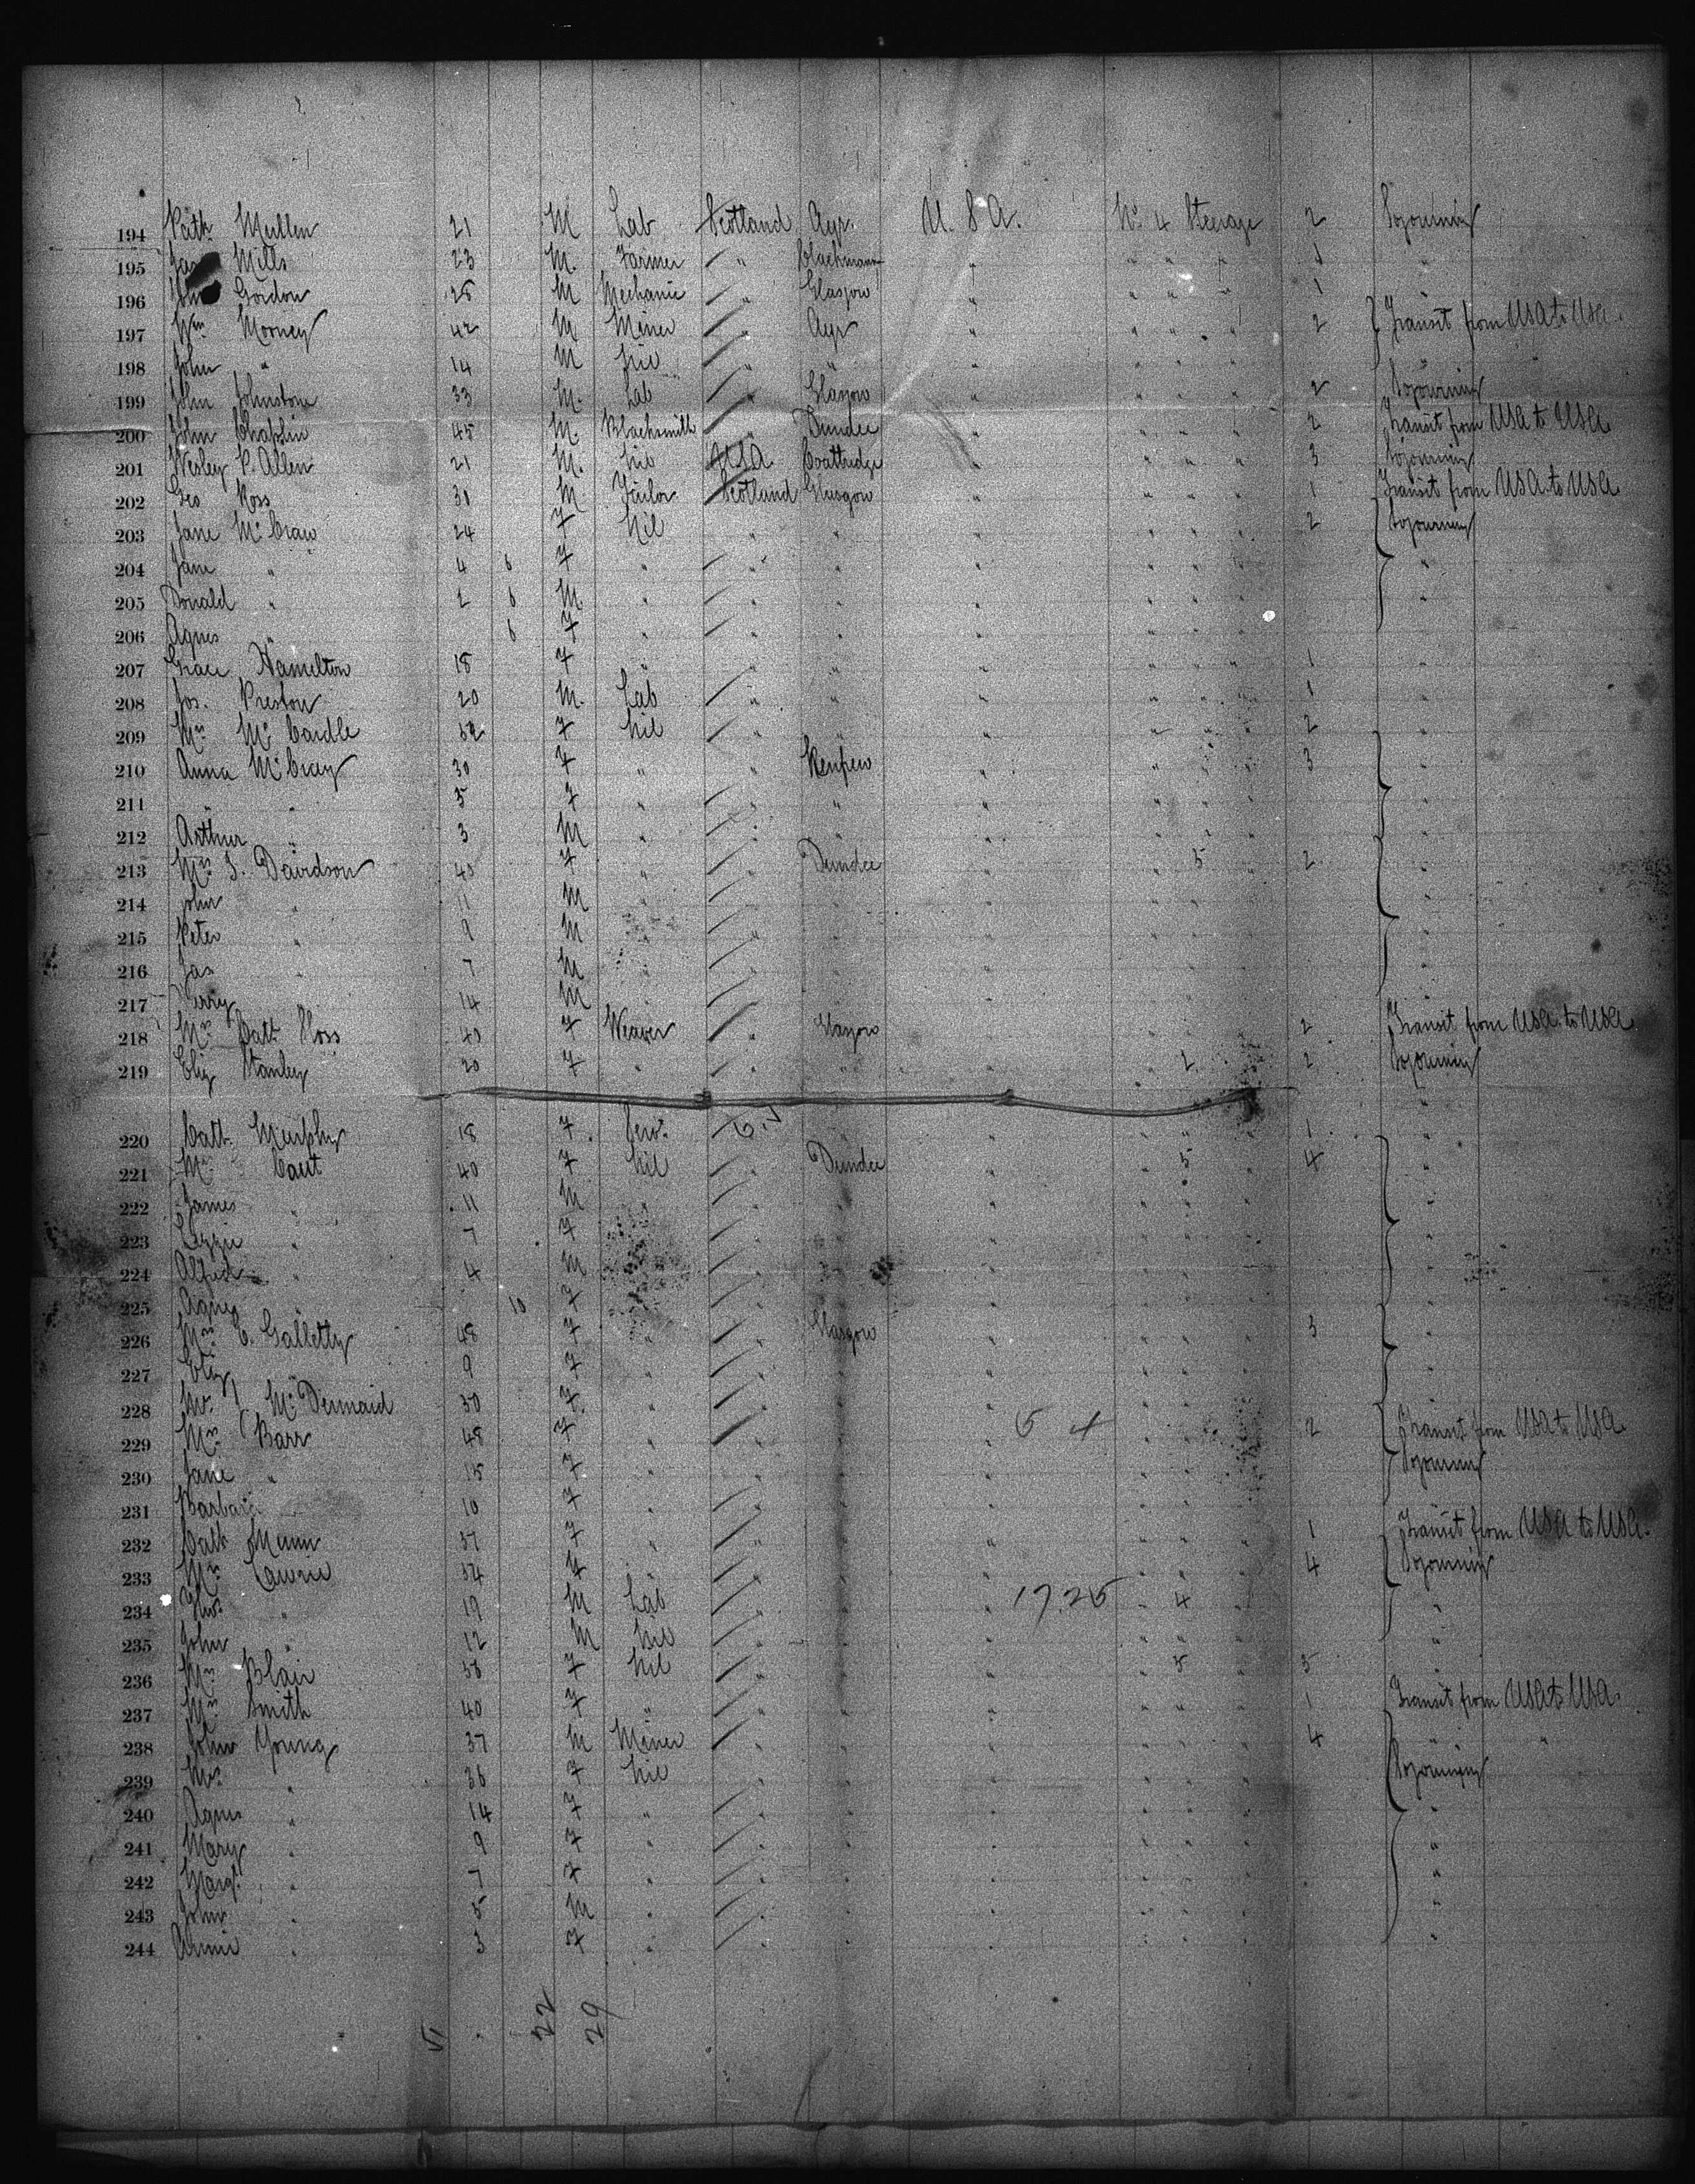 194 Patk Mullen 21 M Lab Scotland Ayr. U. S. A. No. 4 Steerage 2 Sojourning
195 Mills 23 M. Farmer " " " " " 1 "
196 Gordon 28 M Mechanic " Glasgow " " " " 1 "
197 Wm Mooney 42 M Miner " Ayr " " " " 2 Transit from USA to USA.
198 John " 14 M " " " " " " "
199 John Johnstone 33 M. Lab " Glasgow " " " " 2 Sojourning
200 John Chaplin 45 M. Blacksmith " Dundee " " " " 2 Transit from USA to USA
201 Wesley P. Allen 21 M. Nil USA Coatbridge " " " " 3 Sojourning
202 Geo Ross 30 M. Scotland Glasgow " " " " 1 Transit from USA to USA
203 Jane McCraw 24 F Nil " " " " " " 2 Sojourning
204 Jane " 4 6 F " " " " " " " "
205 Donald " 2 6 M. " " " " " " " "
206 Agnes " 6 F " " " " " " " "
207 Grace Hamelton 18 F " " " " " " " 1 "
208 Jos. Preston 20 M. Lab " " " " " " 1 "
209 Mrs McCardle F Nil " " " " " " 2 "
210 Anna 30 F " " Renfrew " " " " 3 "
211 " " 5 F " " " " " " " "
212 Arthur " 3 M " " " " " " " "
213 Mrs J. Davidson 40 F " " Dundee " " 5 " 2 "
214 John " 11 M " " " " " " " "
215 Peter " 9 M " " " " " " " "
216 Jas " 7 M " " " " " " " "
217 14 M " " " " " " " "
218 Mrs Cath Ross 40 F Weaver " Glasgow " " " " 2 Transit from USA to USA
219 Eliz Stanley 20 F " " " " " 2 Sojourning
220 Cath. Murphy 18 F. Serv. " " " " " " 1 "
221 Mrs 40 F Nil " Dundee " " 5 " 4 "
222 James " 11 M " " " " " " " "
223 Lizzie " 7 F " " " " " " " "
224 Alfred " 4 M " " " " " " " "
225 Agnes " 10 F " " " " " " " "
226 Mrs C. Galletly 48 F " " Glasgow " " " " 3 "
227 Eliz " 9 F " " " " " " " "
228 McDermaid 30 F " " " " " " " "
229 Mrs Barr 48 F " " " " 5 4 " " " 2 Transit from USA to USA
230 Jane " 15 F " " " " " " " Sojourning
231 Barbara 10 F " " " " " " "
232 Cath Munn 37 F " " " " " " " 1 Transit from USA to USA.
233 Mrs " " " " " " 4 Sojourning
234 " 19 M Lab " " " 17.25 " 4 " "
235 John " 12 M Nil " " " " " " "
236 Mrs Blair F Nil " " " " 5 " 5 "
237 Mrs Smith 40 F " " " " " " " 1 Transit from USA to USA.
238 John Young 37 M Miner " " " " " " 4 " "
239 Mrs " 36 F Nil " " " " " " Sojourning
240 Agnes " 14 F " " " " " " " "
241 Mary " 9 F " " " " " " " "
242 Margt " 7 F " " " " " " " "
243 John " 5 M " " " " " " " "
244 Annie " 3 F " " " " " " " "
22
29